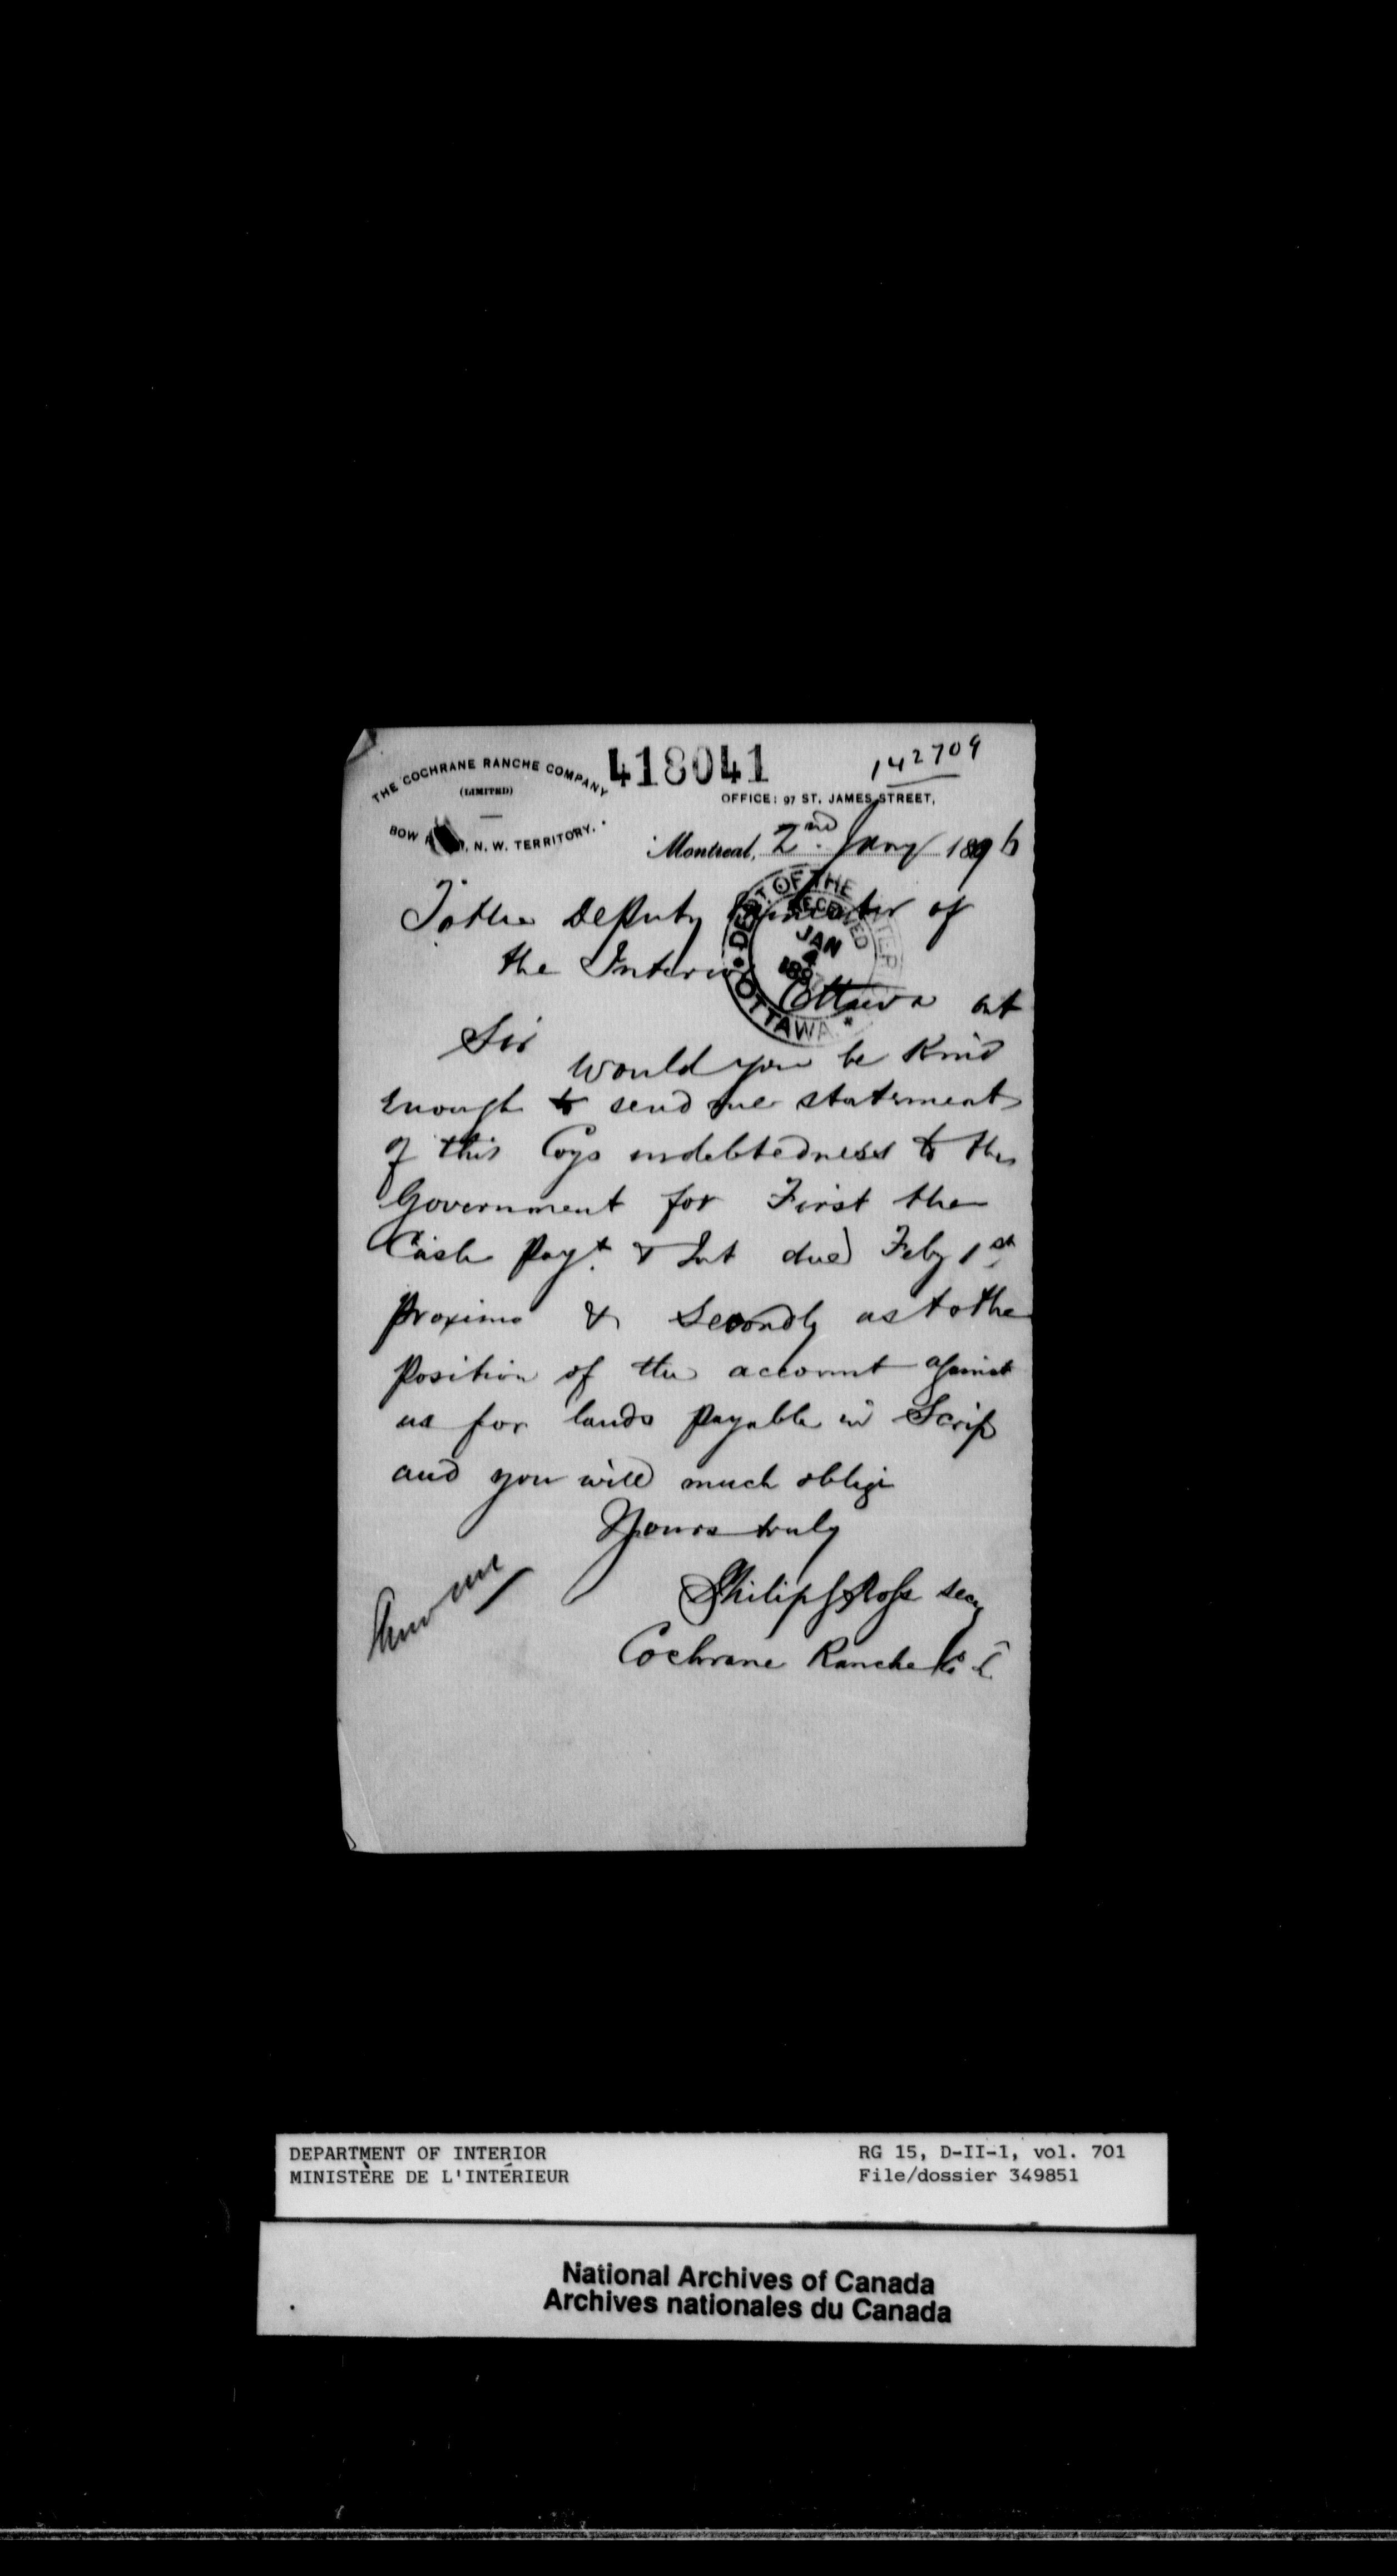 THE COCHRANE RANCHE COMPANY
(LIMITED)
BOW N. W. TERRITORY.
418041
142709
OFFICE: 97 ST. JAMES STREET,
Montreal, 2nd Jany 1896
DEPT. OF THE INTERIOR
RECEIVED
JAN
4
189
OTTAWA
To the Deputy Minister of
the Interior
Ottawa Ont
Sir
Would you be Kind
Enough to send me statement
of this Coys indebtedness to the
Government for First the
Cash Payt. & Int due Feby 1st
Proximo & Secondly as to the
Position of the account against
us for lands Payable in Scrip
and you will much oblige
Yours truly
Philip S Ross Secy
Cochrane Ranche Co. L
DEPARTMENT OF INTERIOR
MINISTÈRE DE L'INTÉRIEUR
RG 15, D-II-1, vol. 701
File/dossier 349851
National Archives of Canada
Archives nationales du Canada